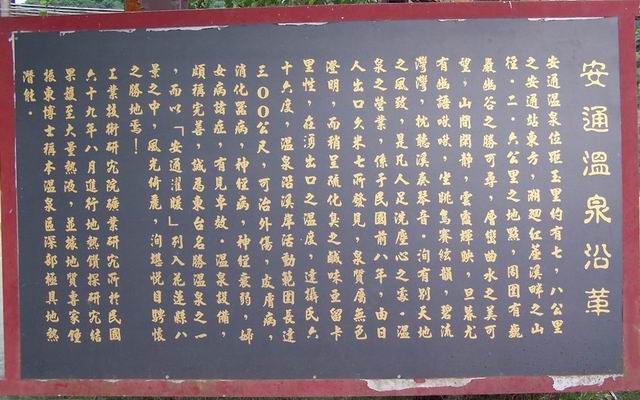 安通溫泉沿革
安通溫泉位距玉里約有七,八公里
之安通站東方,溯迴紅葉溪畔之山
徑.二.六公里之地點,周圍有巍
巖幽谷之勝可尋,層巒曲水之美可
望,山間閑靜,雲霞輝映,旦暮尤
有幽語啾啾,坐眺鳥賽絃韻,碧流
灣灣,枕聽溪戾琴音.洵有別天地
之風致,是凡人足洗塵心之處.溫
泉之營業,係于民國前八年,由日
人出口久米七所發見,泉質屬無色
澄明,而稍呈硫化臭之鹹味亞留卡
里性,在湧出口之溫度,達攝氏六
十六度.溫泉沿溪岸活動範圍長達
三○○公尺,可治外傷,皮膚病,
消化器病,神經病.神經衰弱,婦
女病諸症,有見卓效.溫泉設備,
頗稱完善,誠為東台名勝溫泉之一
,而以「安通濯暖」列入花蓮縣八
景之中.風光綺麗,洵堪悅目騁懷
之勝地焉!
工業技術研究院礦業研究所於民國
六十九年八月進行地熱儀探研究結
果獲至大量熱液,並據地質專家鍾
振東博士稱本溫泉區深部極具地熱
潛能.